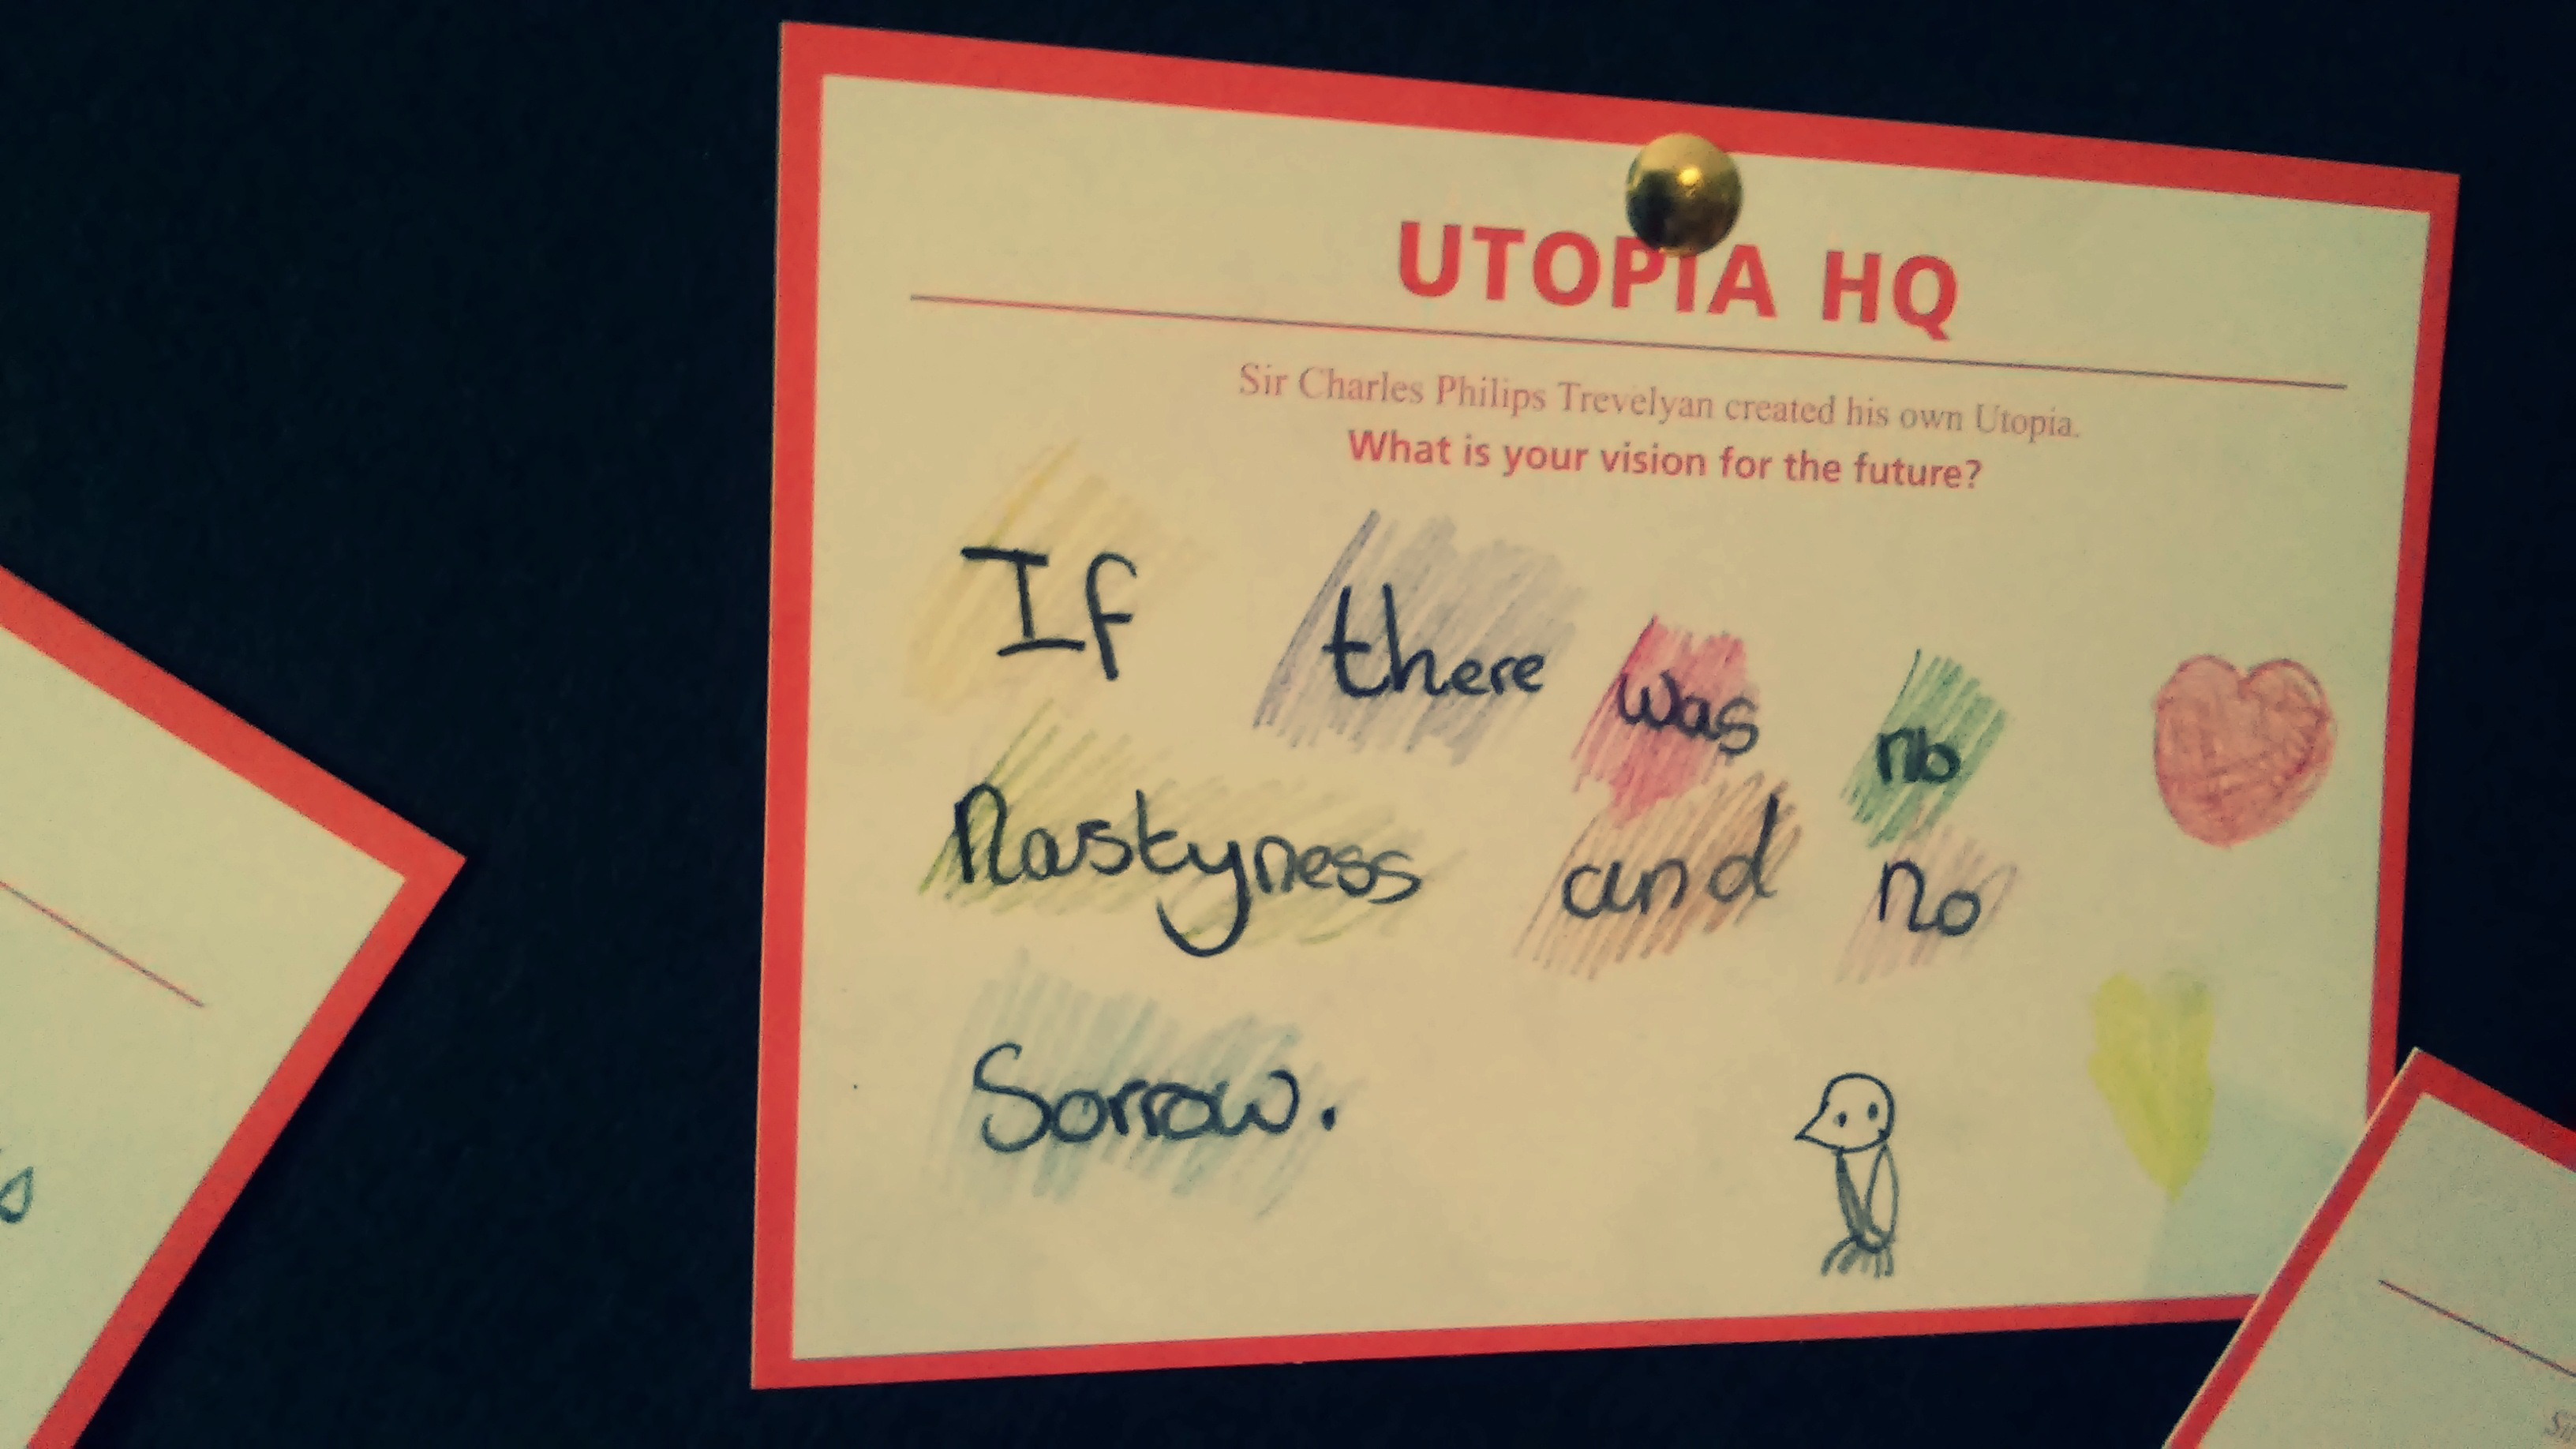 UTOPIA HQ
Sir Charles Philips Trevelyan created his own Utopia.
What is your vision for the future?
If there was no
Nastyness and no
Sorrow.